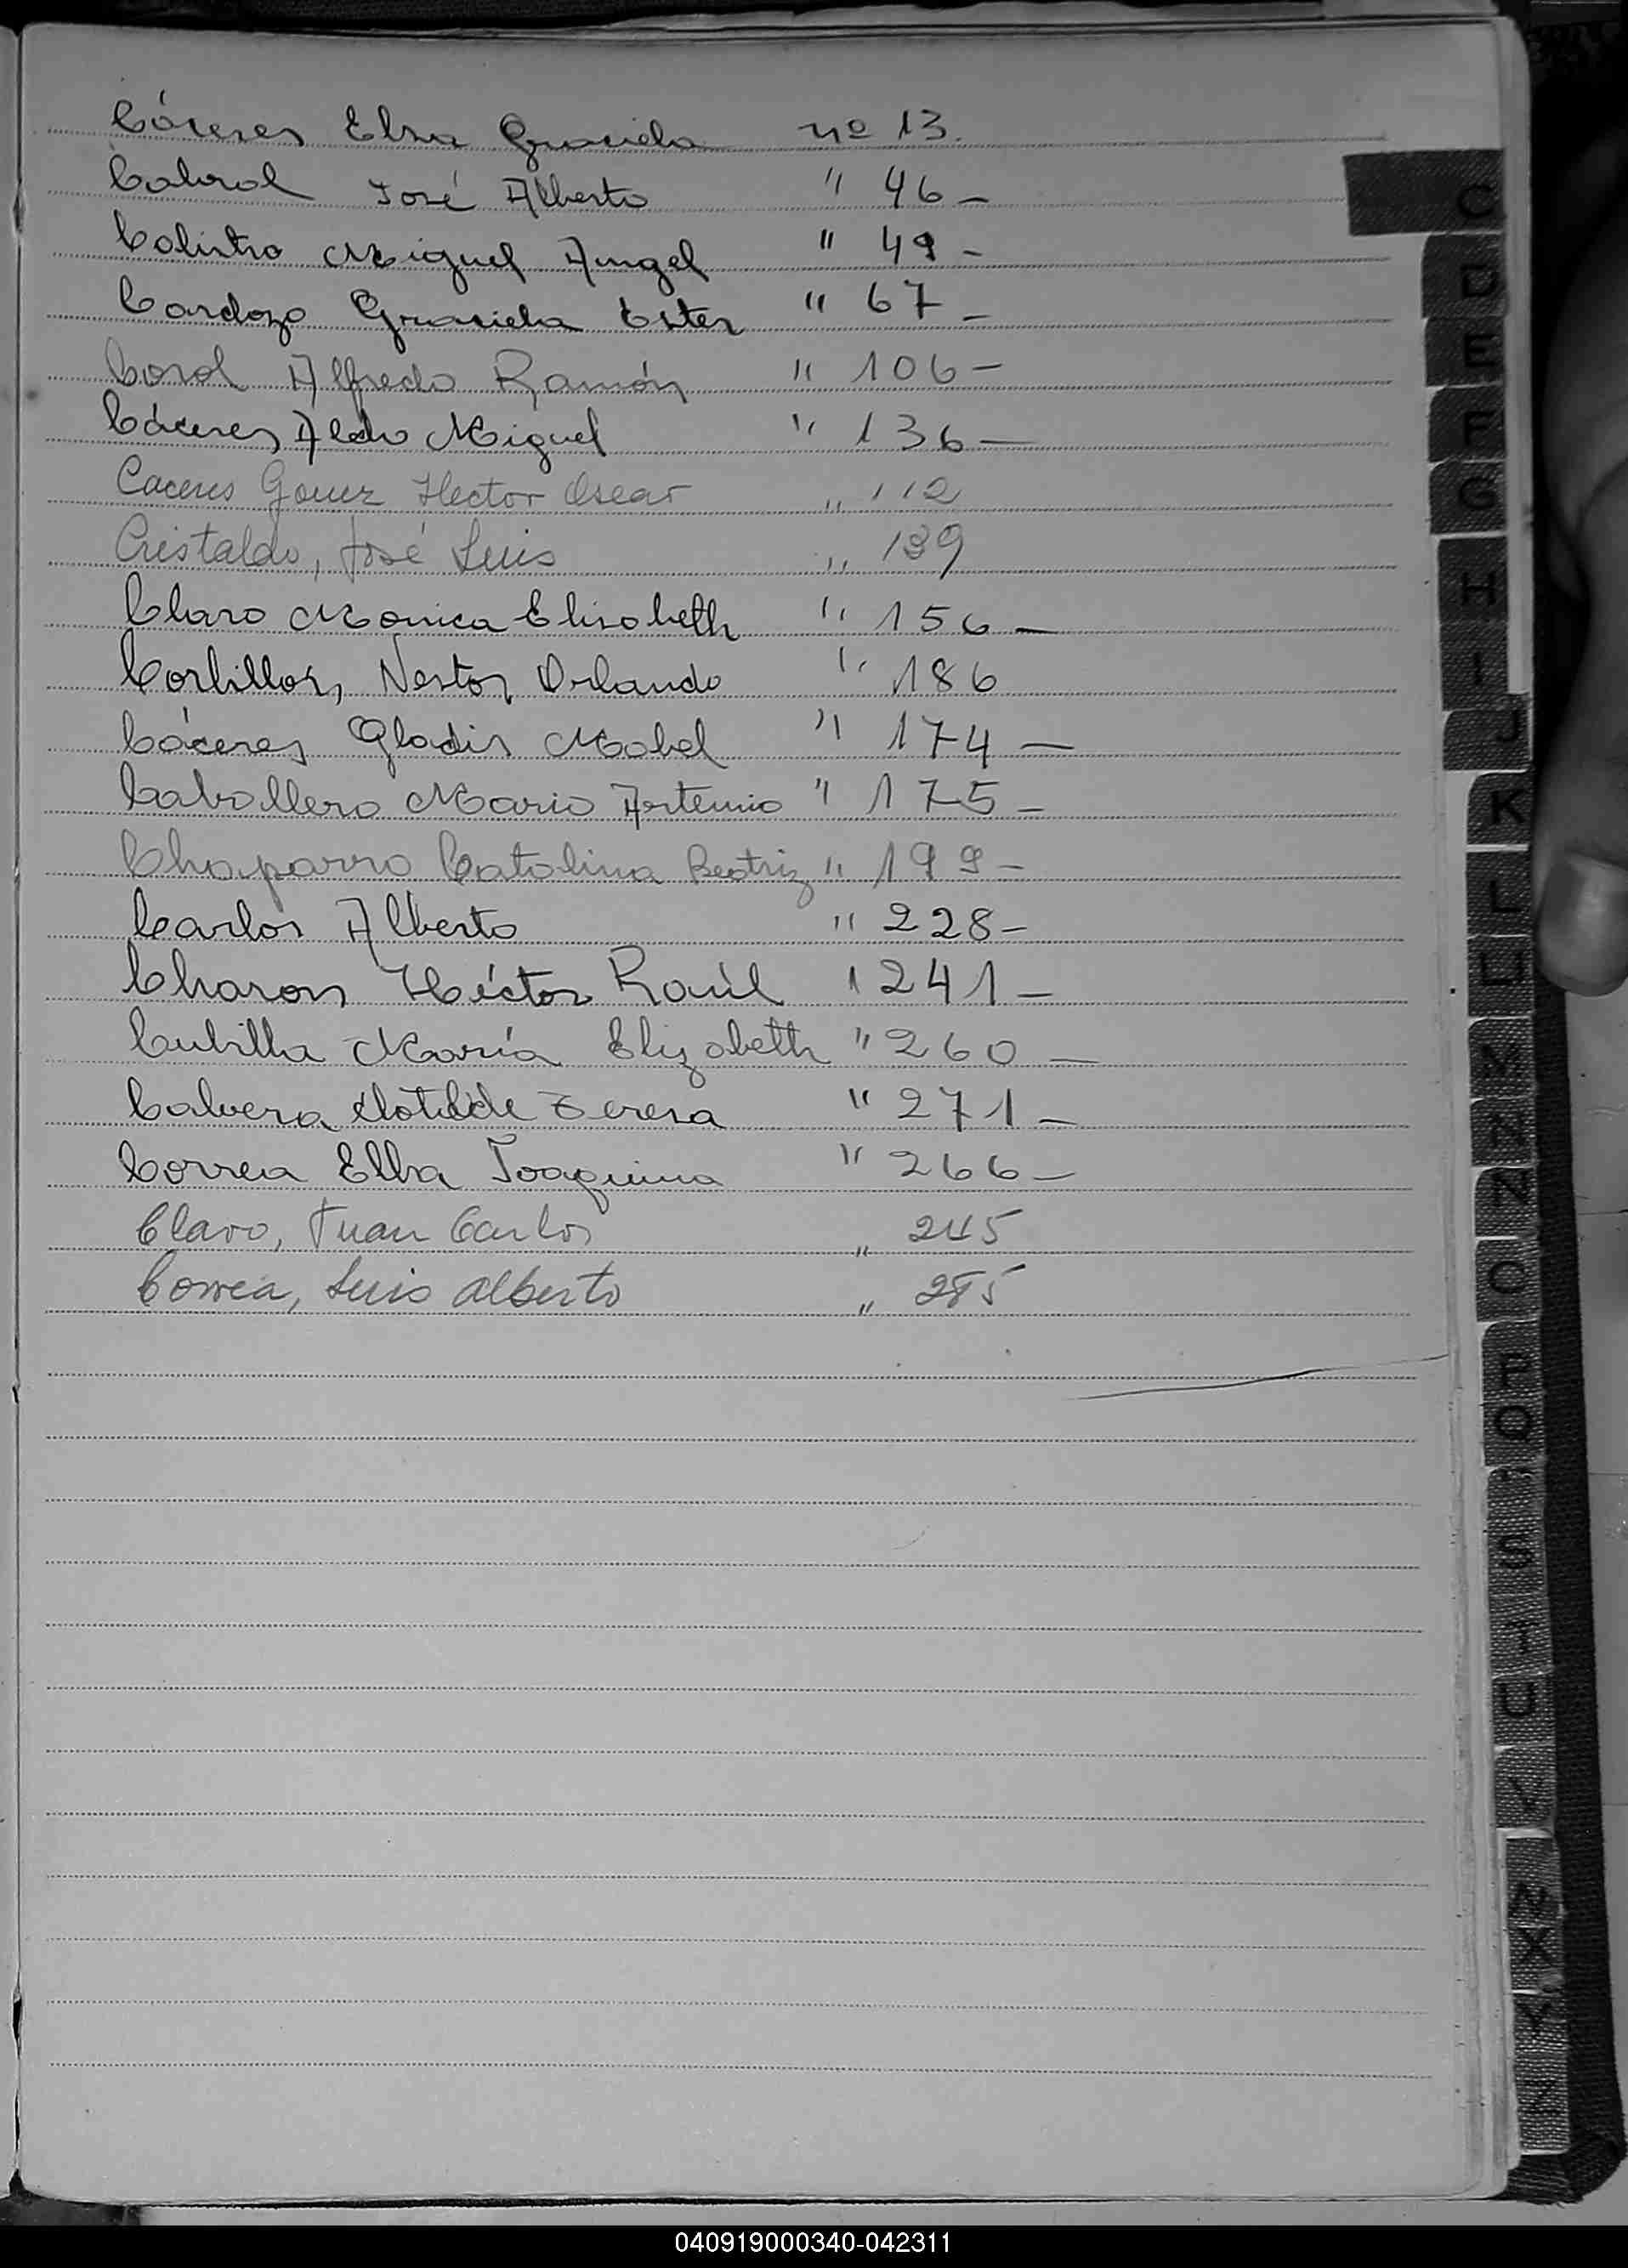 Cáceres Elsa Graciela nº 13.
Cabral José Alberto " 46 -
Calistro Miguel Angel " 49 -
Cardozo Graciela Ester " 67 -
Coral Alfredo Ramón " 106 -
Cáceres Aldo Miguel " 136 -
Caceres Gomez Hector Oscar " 112
Cristaldo, José Luis " 139
Claro Monica Elisabeth " 156 -
Nestor Orlando " 186
Cáceres Gladis Mabel " 174 -
Caballero Mario Artemio " 175 -
Chaparro Catalina Beatriz " 199 -
Carlos Alberto " 228 -
Charon Héctor Raúl " 241 -
Cubilla María Elizabeth " 260 -
Calvera Clotilde Teresa " 271 -
Correa Elba Joaquina " 266 -
Claro, Juan Carlos " 245
Correa, Luis Alberto " 285
C
D
E
F
G
H
I
J
K
L
LL
M
N
Ñ
O
P
Q
S
T
U
V
X
Y
Z
040919000340-042311